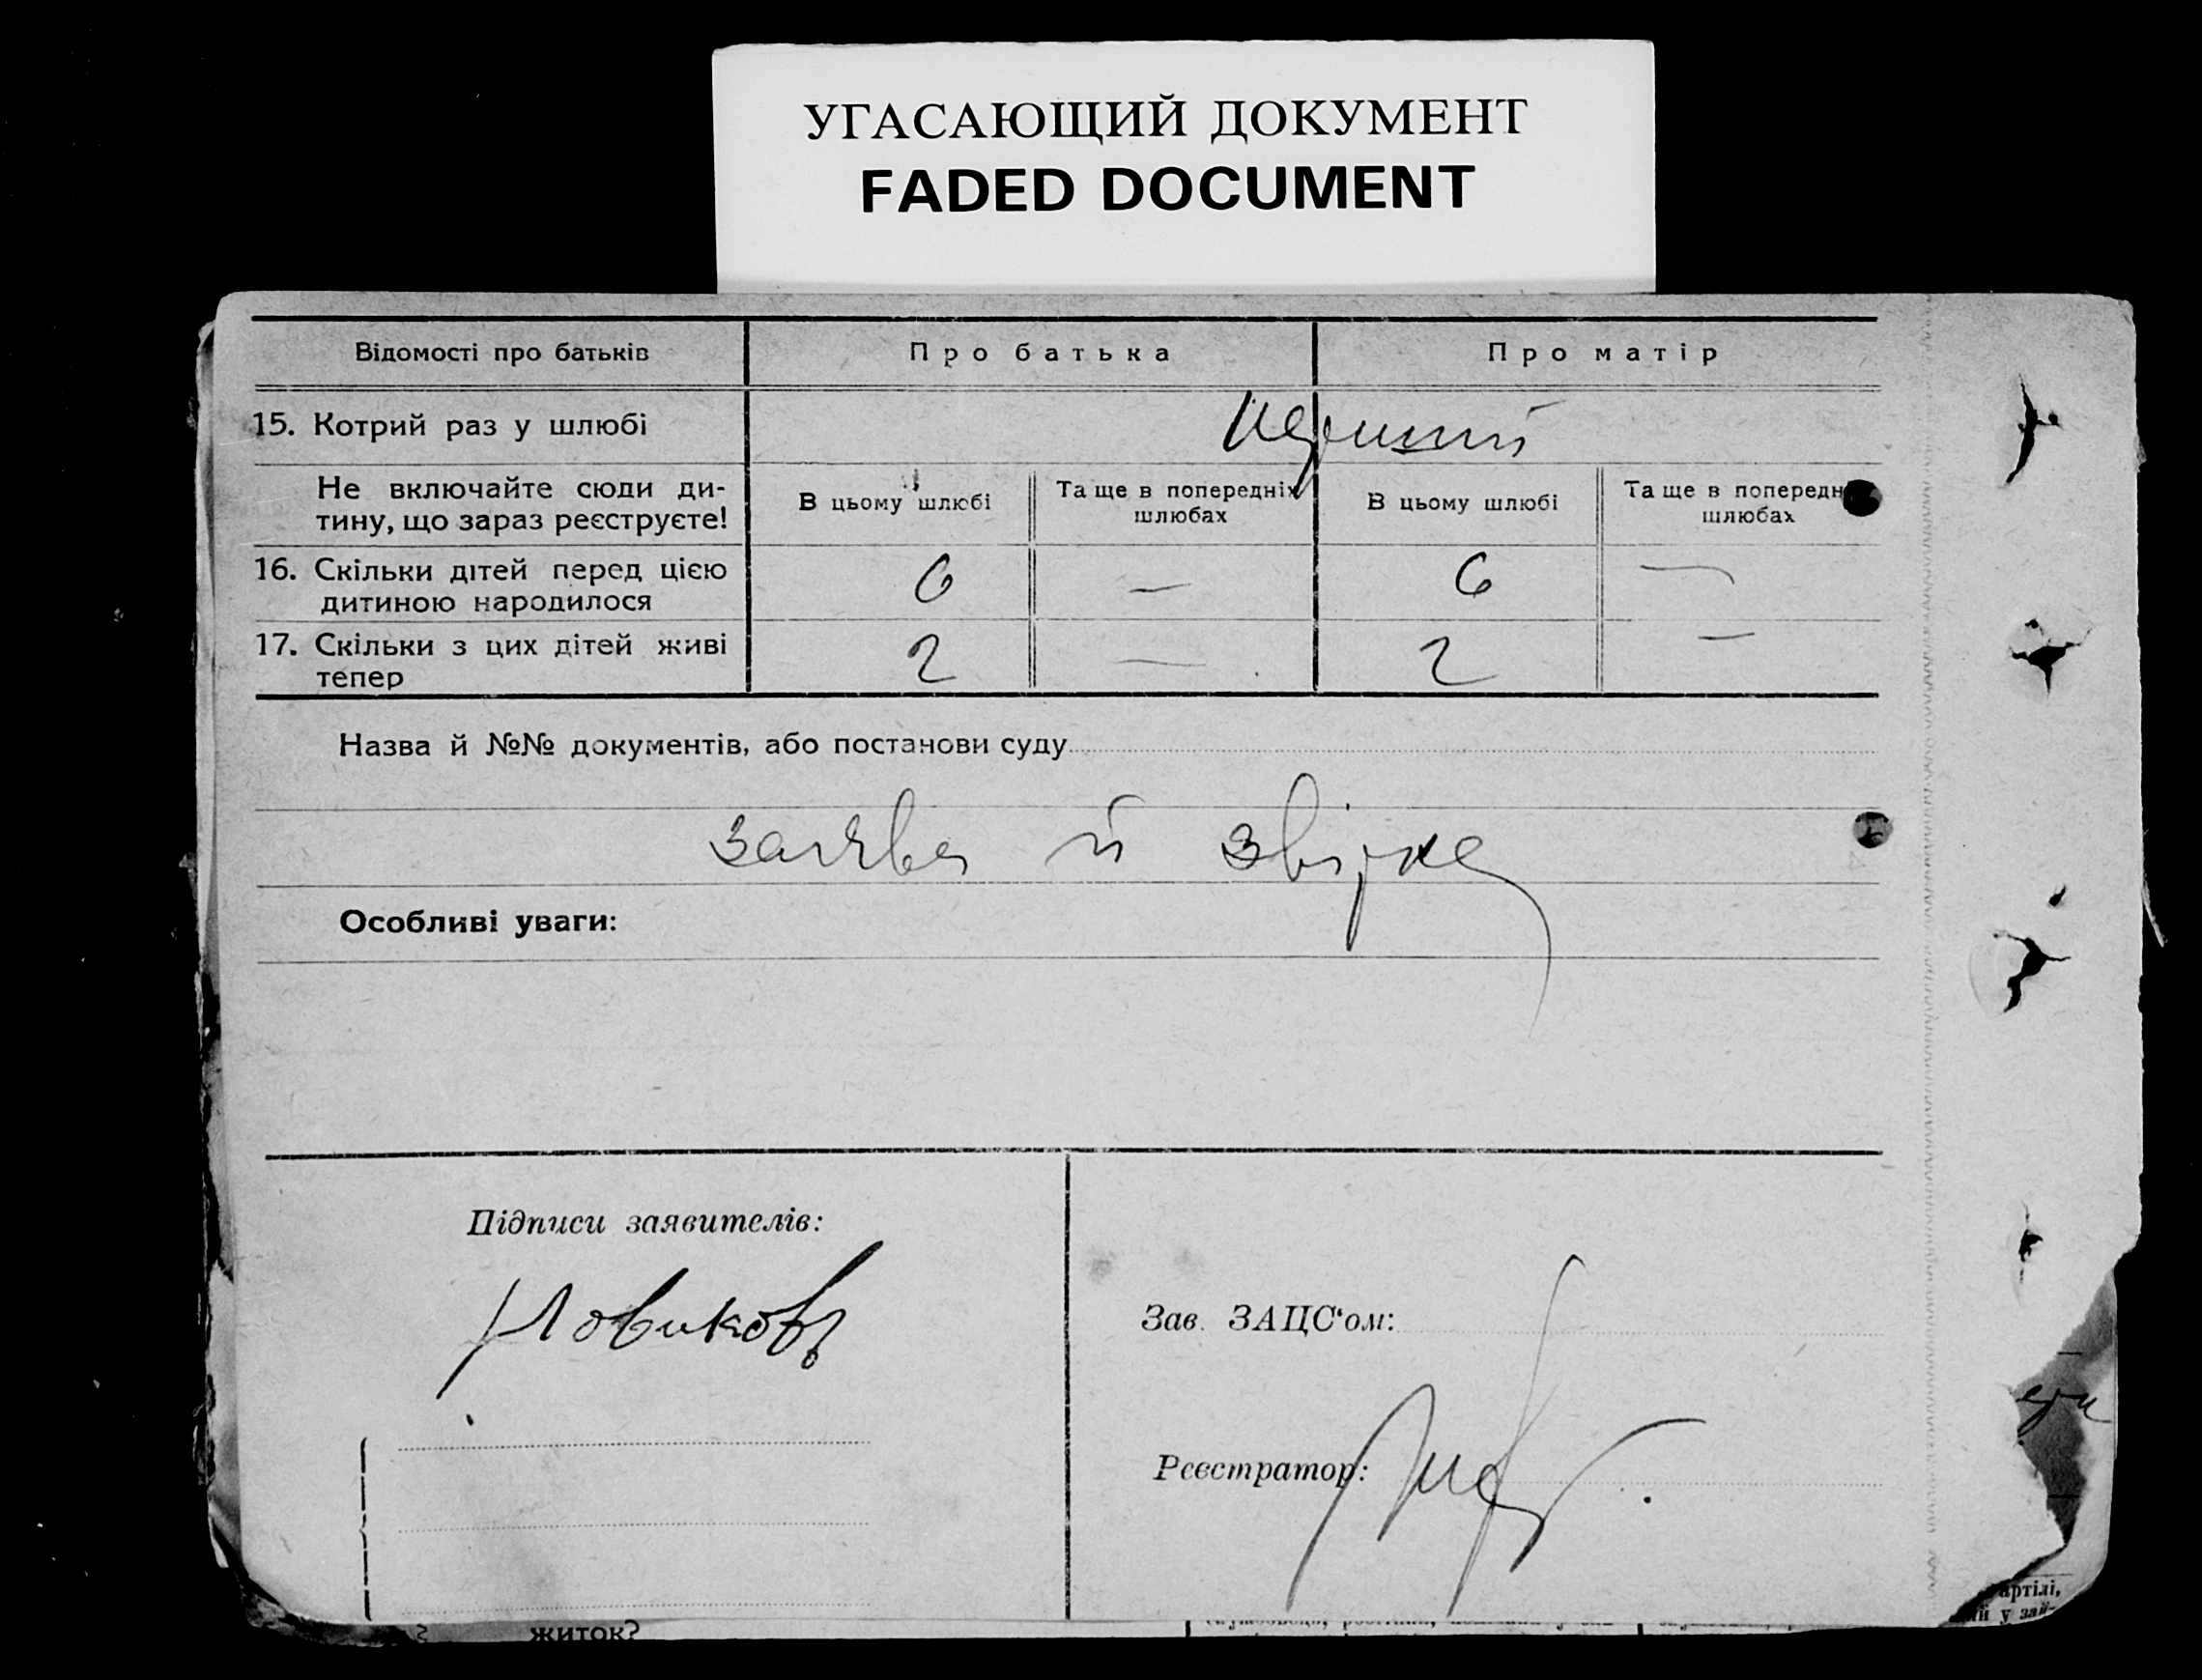 УГАСАЮЩИЙ ДОКУМЕНТ
FADED DOCUMENT
Відомості про батьків
Про батька
Про матір
15. Котрий раз у шлюбі
перший
Не включайте сюди ди-
тину, що зараз реєструєте!
В цьому шлюбі
Та ще в попередніх
шлюбах
В цьому шлюбі
Та ще в попередн
шлюбах
16. Скільки дітей перед цією
дитиною народилося
6
—
6
—
17. Скільки з цих дітей живі
тепер
2
—
2
—
Назва й №№ документів, або постанови суду
заява й звірка
Особливі уваги:
Підписи заявителів:
Новиков
Зав. ЗАЦС‘ом:
Реєстратор:
житок?
артілі,
й у зай-